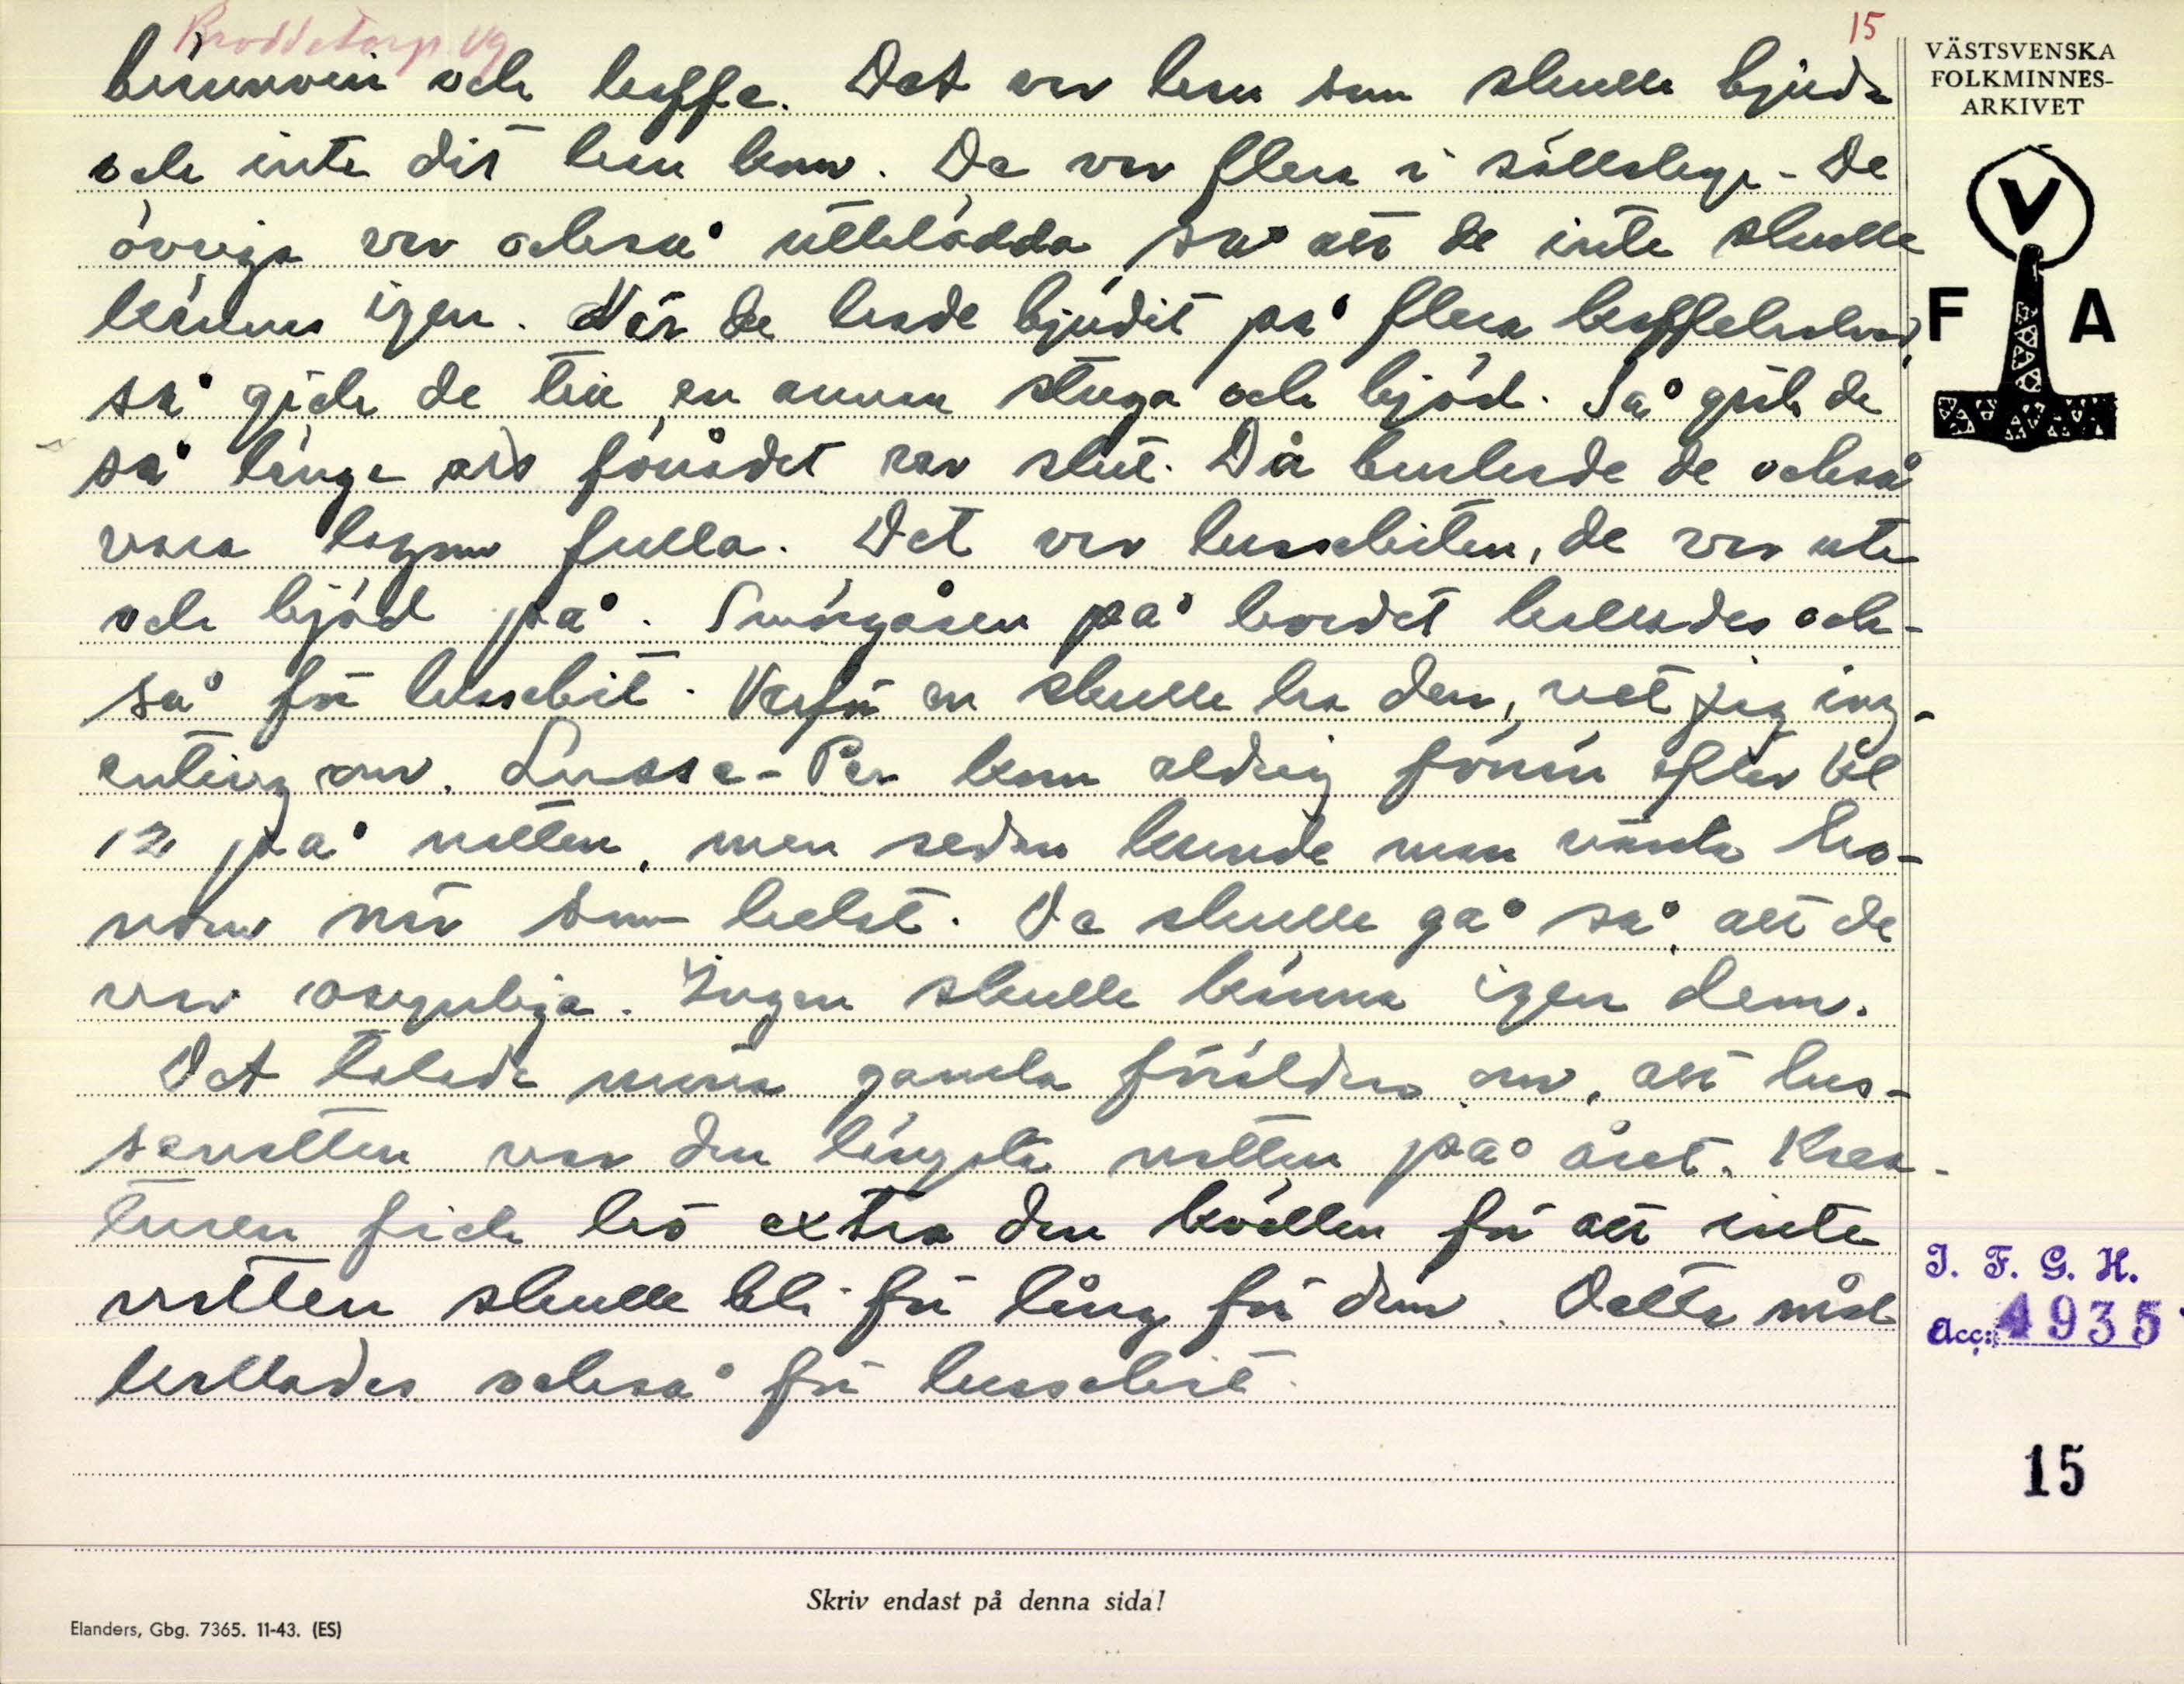 Broddetorp Vg
15
brännvin och kaffe. Det var han som skulle bjuda
och inte dit han kom. De var flera i sällskap. De
övriga var också utklädda så att de inte skulle
kännas igen. När de hade bjudit på flera kaffehalvor,
så gick de till en annan stuga och bjöd. Så gick de
så länge att förrådet var slut. Då brukade de också
vara lagom fulla. Det var lussebiten, de var ute
och bjöd på. Smörgåsen på bordet kallades ock-
så för lussebit. Varför en skulle ha den, vet jag ing-
enting om. Lusse-Per kom aldrig förrän efter kl
12 på natten, men sedan kunde man vänta ho-
nom när som helst. De skulle gå så, att de
var osynliga. Ingen skulle känna igen dem.
Det talade mina gamla föräldrar om, att lus-
senatten var den längsta natten på året. Krea-
turen fick hö extra den kvällen för att inte
natten skulle bli för lång för dem. Detta mål
kallades också för lussebit.
VÄSTSVENSKA
FOLKMINNES-
ARKIVET
V
F A
I. F. G. H.
Acc: 4935
15
Skriv endast på denna sida!
Elanders, Gbg. 7365. 11-43. (ES)